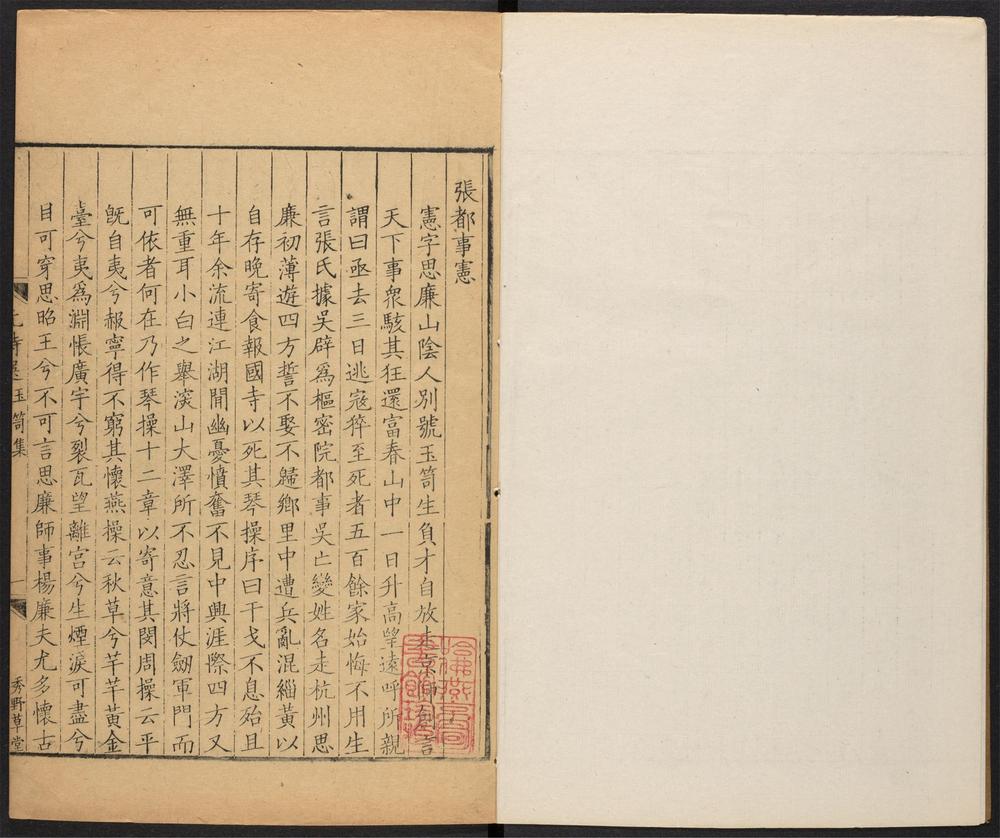 張都事憲
憲字思廉山陰人別號玉笥生負才自放走京師創言
天下事衆駭其狂還富春山中一日升高望遠呼所親
謂曰亟去三日逃寇猝至死者五百餘家始悔不用生
言張氏據吳辟爲樞密院都事吳亡變姓名走杭州思
廉初薄遊四方誓不娶不歸鄉里中遭兵亂混緇黃以
自存晚寄食報國寺以死其琴操序曰干戈不息殆且
十年余流連江湖間幽憂憤奮不見中興涯際四方又
無重耳小白之舉深山大澤所不忍言將仗劒軍門而
可依者何在乃作琴操十二章以寄意其閔周操云平
旣自夷兮赧寧得不窮其懷燕操云秋草兮芊芊黃金
臺兮夷爲淵悵廣宇兮裂瓦望離宮兮生煙淚可盡兮
目可穿思昭王兮不可言思廉師事楊廉夫尤多懷古
玉笥集
一
秀野草堂